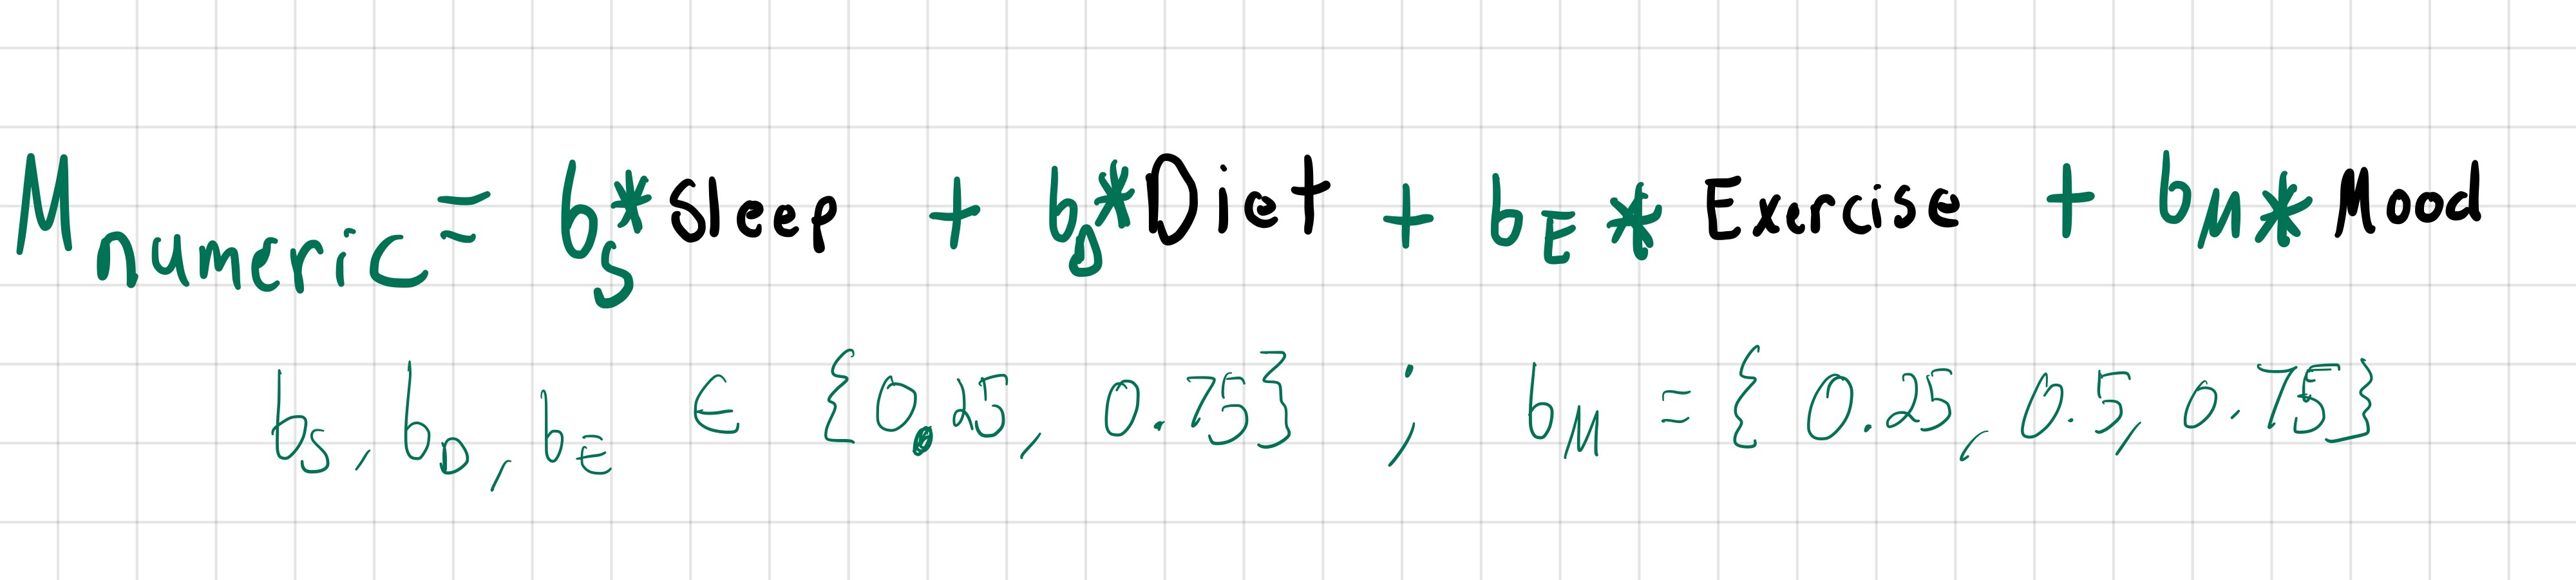 M_numeric = b_S * Sleep + b_D * Diet + b_E * Exercise + b_M * Mood
b_S, b_D, b_E ∈ {0.25, 0.75} ; b_M = {0.25, 0.5, 0.75}